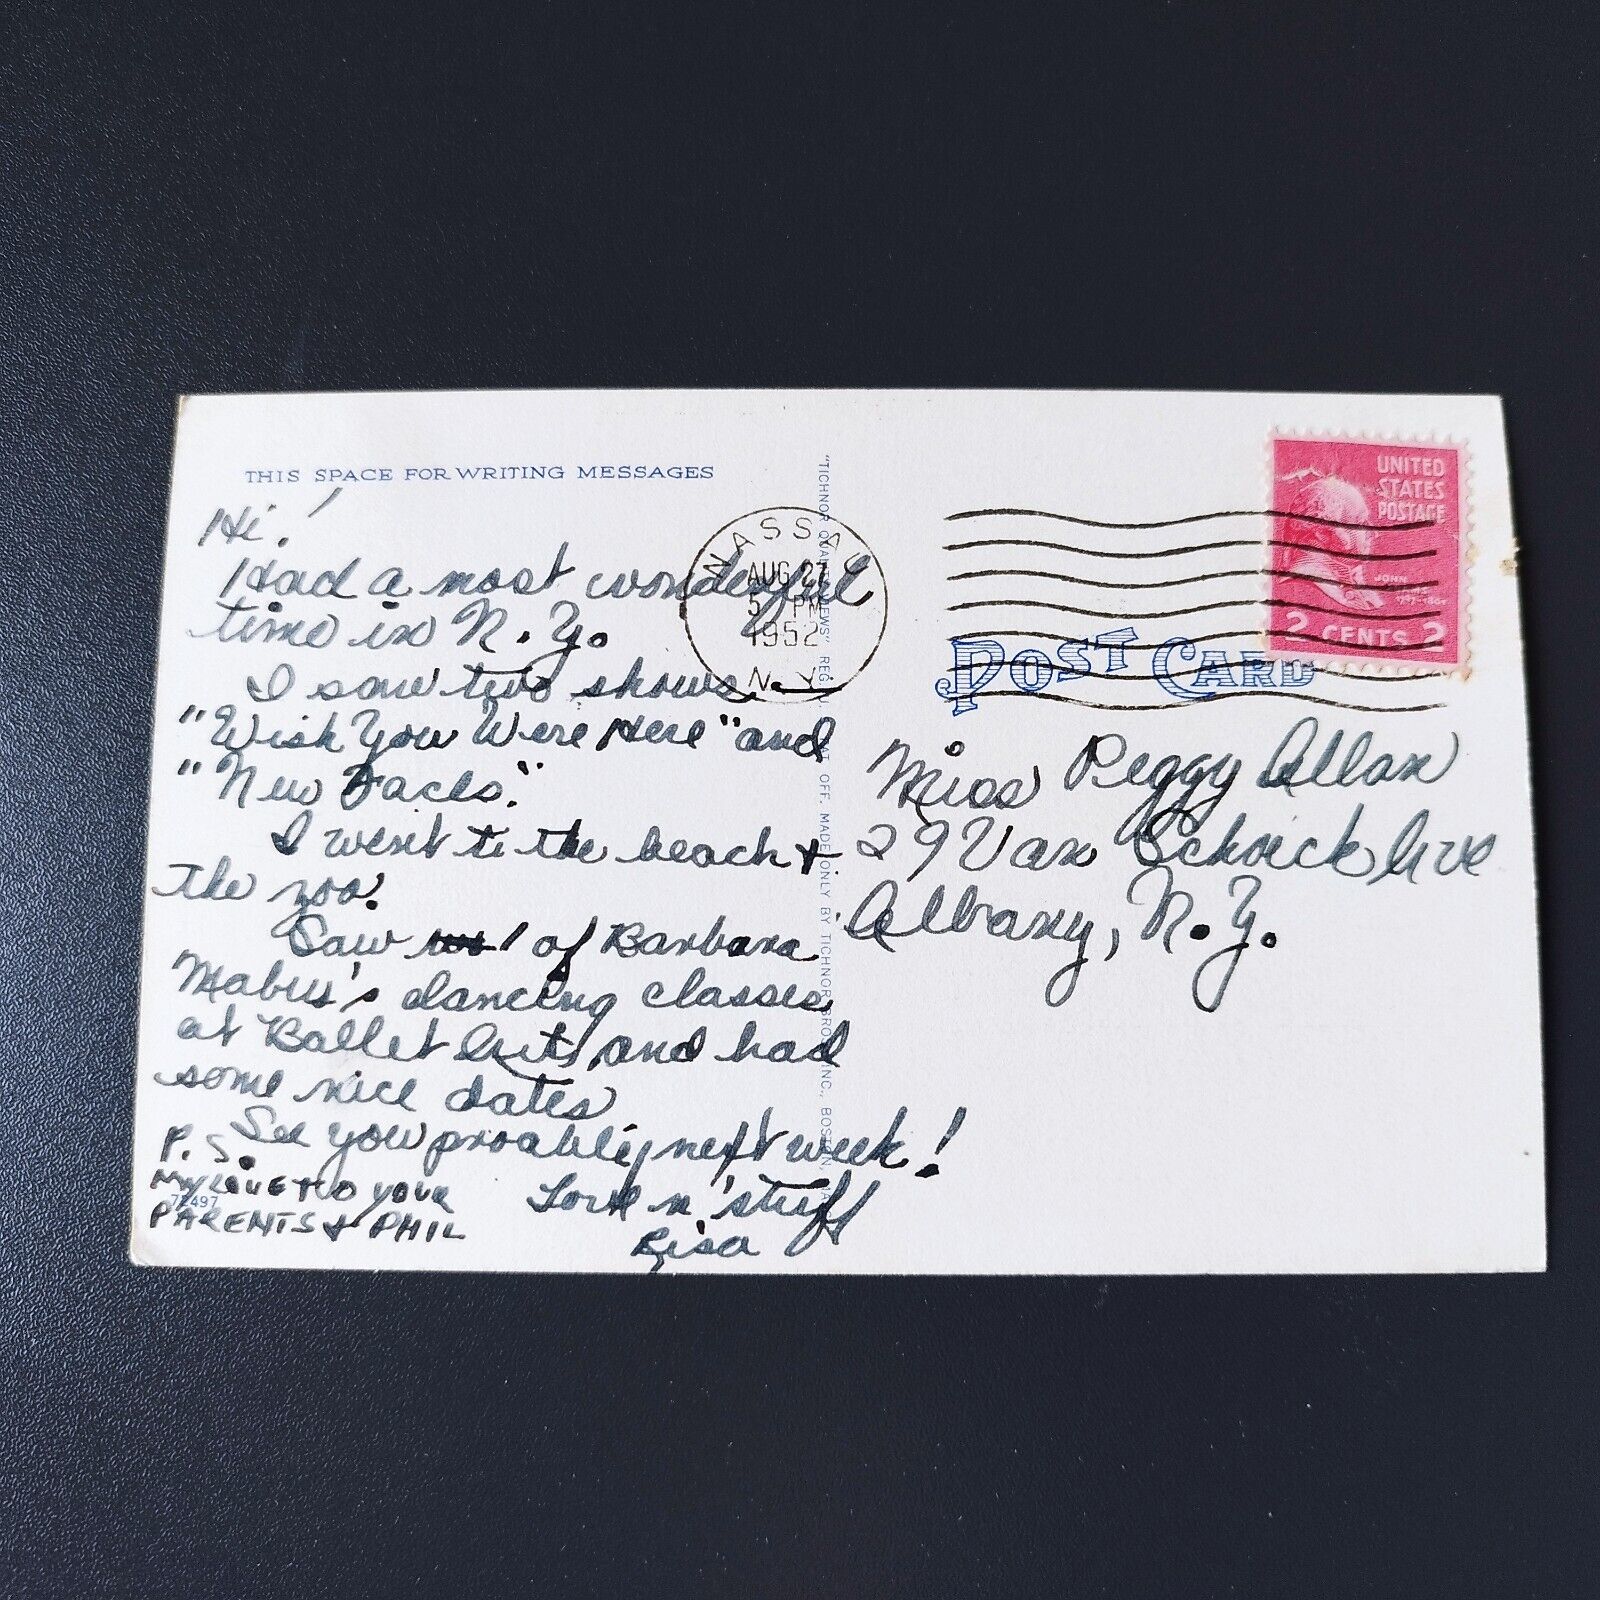 THIS SPACE FOR WRITING MESSAGES
Hi!
Had a most wonderful
time in N.Y.
I saw two shows
"Wish You Were Here" and
"New Faces."
I went to the beach +
the zoo.
Saw 1 of Barbara
dancing classes
at Ballet Arts, and had
some nice dates
See you proably next week!
Love n' stuff
Risa
P.S.
MY LOVE TO YOUR
PARENTS + PHIL
72497
"TICHNOR QUALITY VIEWS" REG. U. S. PAT. OFF. MADE ONLY BY TICHNOR BROS., INC., BOSTON, MASS.
WASSAU
AUG 27
5 PM
1952
N.Y.
UNITED
STATES
POSTAGE
JOHN
ADAMS
2 CENTS 2
POST CARD
Miss Peggy Allan
29 Van Schoick Ave
Albany, N.Y.